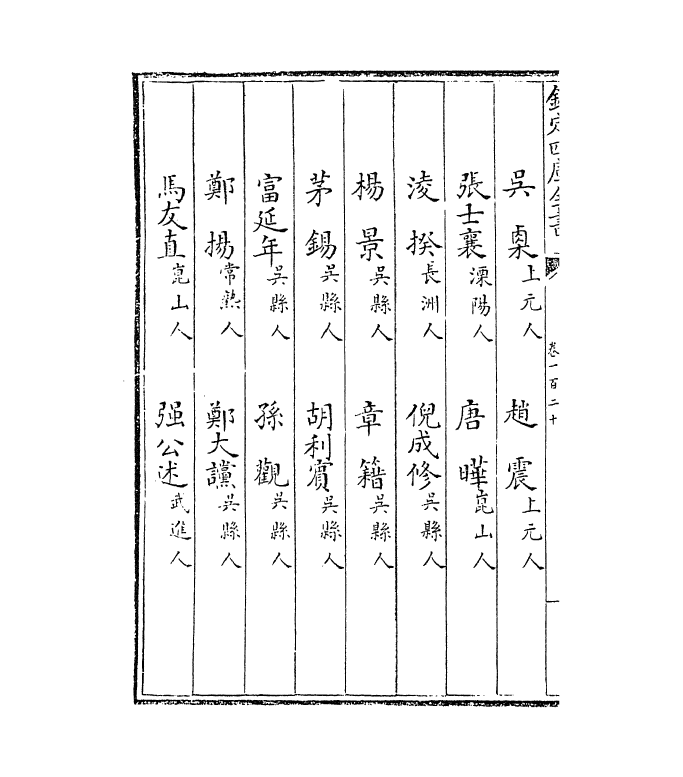 欽定四庫全書
卷一百二十
吳㮚上元人 趙震上元人
張士襄溧陽人 唐曄崑山人
淩揆長洲人 倪成修吳縣人
楊景吳縣人 章籍吳縣人
茅錫吳縣人 胡利賔吳縣人
富延年吳縣人 孫觀吳縣人
鄭揚常熟人 鄭大讜吳縣人
馬友直崑山人 强公述武進人